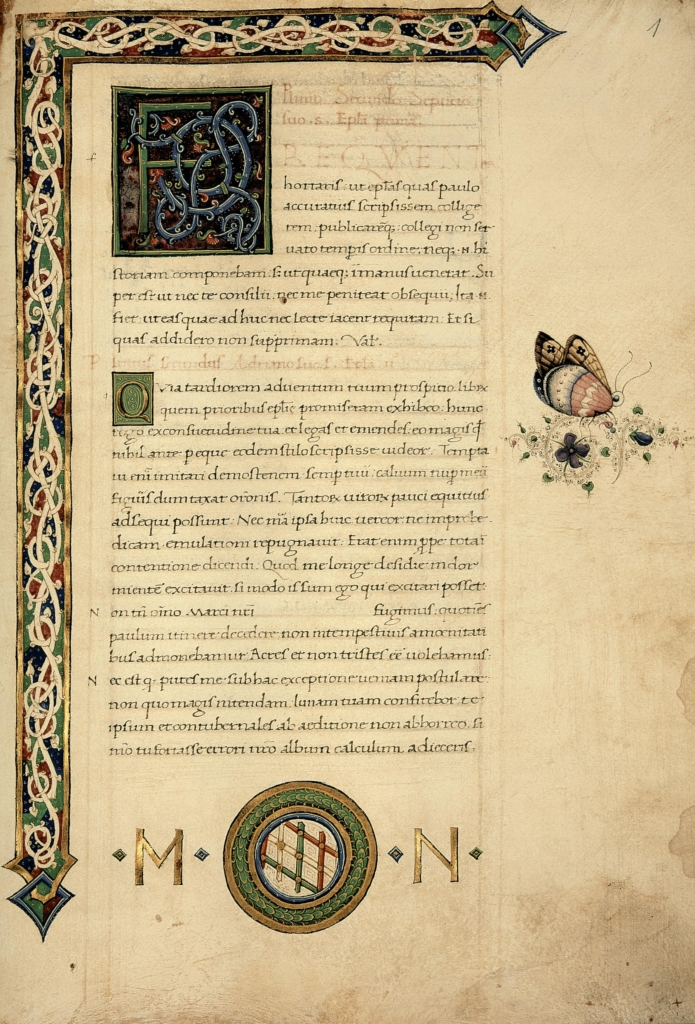 1
Plinius Secundus Septicio
suo .s. Epła prima.
F REQVENT
hortaris ut epłas quas paulo
accuratius scripsissem collige
rem publicaréq; collegi non ser
uato tempis ordine. neq; .n. hi
storiam componebam. S; ut quaeq; ī manus uenerat. Su
per est ut nec te consilii. nec me peniteat obsequii, Ita .n.
fiet ut eas quae ad huc neclecte iacent requiram. Et si
quas addidero non supprimam. Val.
Plinius secundus Adriano suo .s. Epła .ii.
Q Via tardiorem aduentum tuum prospitio. librū
quem prioribus epłis promiseram exhibeo. hunc
rogo ex consuetudine tua. et legas et emendes. eo magis q
nihil ante peque eodem stilo scripsisse uideor. Tempta
ui eni imitari demostenem semp tuū. caluum nup meū
figuris dum taxat orōnis. Tantoꝝ uitoꝝ pauci equitius
adsequi possunt. Nec mā ipsa huic uereor ne improbe
dicam emulationi repugnauit. Erat enim ppe tota ī
contentione dicendi. Quod me longe desidie indor
mientē excitauit. si modo is sum ego qui excitari posset
N on tn̄ oīno Marci nrī fugimus. quotiēs
paulum itinere decedere non intempestiuis amoenitati
bus admonebamur. Acres eē non tristes eē uolebamus.
N ec est q putes me sub hac exceptione ueniam postulare.
non quo magis intendam. limam tuam confitebor. te
ipsum et contubernales ab aeditione non abhorreo. si
mō tu fortasse errori nro album calculum adieceris.
M N